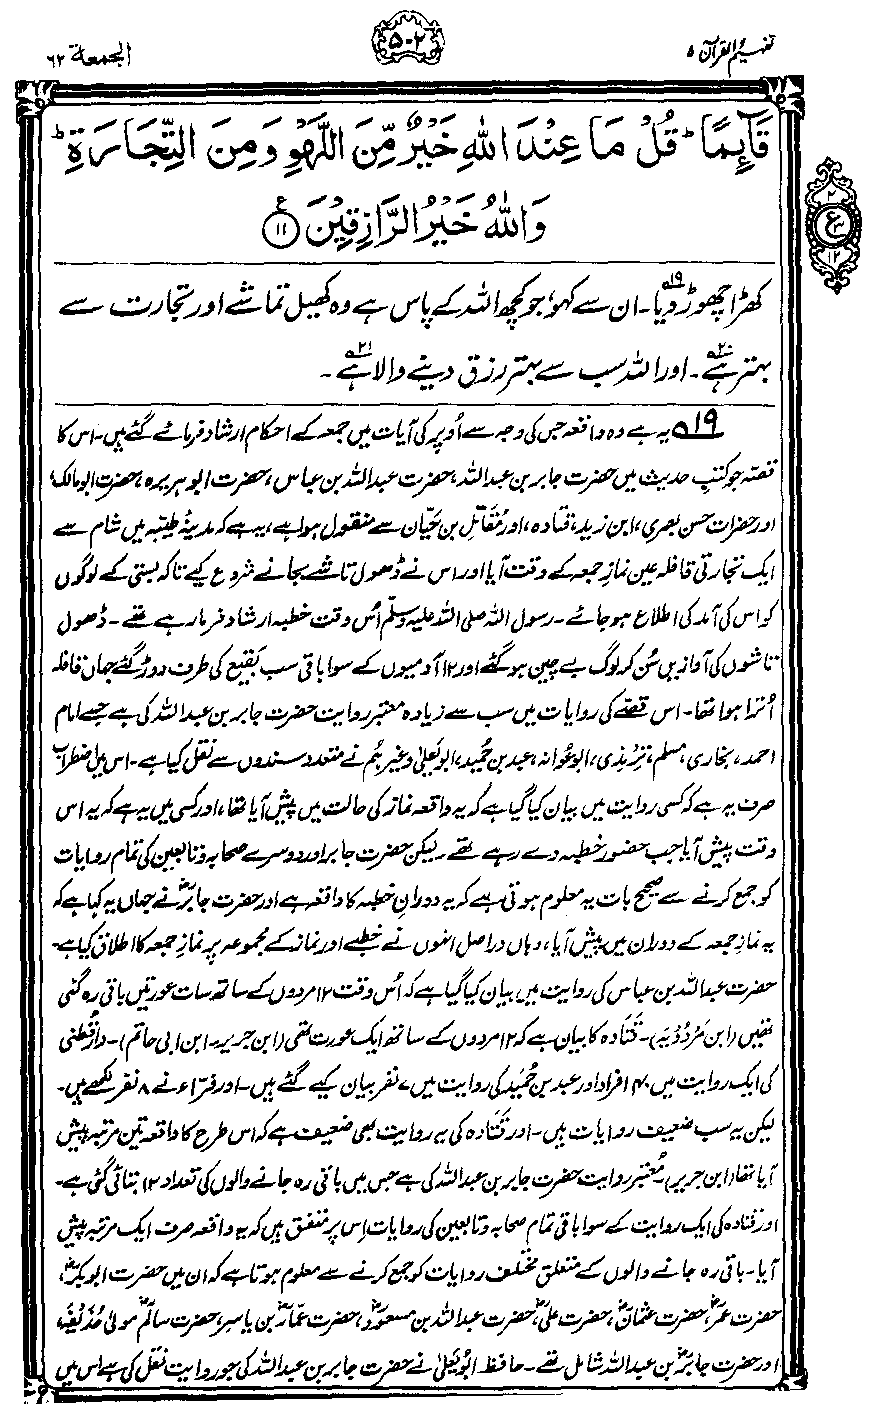 تفہیم القرآن ۵
۵۰۲
الجمعۃ ۶۲
قَآئِمًا ؕ قُلْ مَا عِنْدَ اللّٰهِ خَيْرٌ مِّنَ اللَّهْوِ وَمِنَ التِّجَارَةِ ؕ
وَاللّٰهُ خَيْرُ الرَّازِقِيْنَ ﴿۱۱﴾
۲
ع
۳
۱۲
کھڑا چھوڑ دیا۔۱۹ ان سے کہو، جو کچھ اللہ کے پاس ہے وہ کھیل تماشے اور تجارت سے
بہتر ہے۔۲۰ اور اللہ سب سے بہتر رزق دینے والا ہے۲۱۔
۱۹ یہ ہے وہ واقعہ جس کی وجہ سے اُوپر کی آیات میں جمعہ کے احکام ارشاد فرمائے گئے ہیں۔ اس کا
قصّہ جو کتبِ حدیث میں حضرت جابر بن عبداللہ، حضرت عبداللہ بن عباس، حضرت ابو ہریرہ، حضرت ابو مالک،
اور حضرات حسن بصری، ابن زید، قتادہ، اور مُقاتِل بن حَیّان سے منقول ہوا ہے، یہ ہے کہ مدینۂ طیبہ میں شام سے
ایک تجارتی قافلہ عین نمازِ جمعہ کے وقت آیا اور اس نے ڈھول تاشے بجانے شروع کیے تاکہ بستی کے لوگوں
کو اس کی آمد کی اطلاع ہو جائے۔ رسول اللہ صلی اللہ علیہ وسلم اُس وقت خطبہ ارشاد فرما رہے تھے۔ ڈھول
تاشوں کی آوازیں سُن کر لوگ بے چین ہو گئے اور ۱۲ آدمیوں کے سوا باقی سب بَقیع کی طرف دوڑ گئے جہاں قافلہ
اُترا ہوا تھا۔ اس قصّے کی روایات میں سب سے زیادہ معتبر روایت حضرت جابر بن عبداللہ کی ہے جسے امام
احمد، بخاری، مسلم، ترمذی، ابو عَوانہ، عبد بن حُمید، ابو یَعلیٰ وغیرہم نے متعدد سندوں سے نقل کیا ہے۔ اس میں اضطراب
صرف یہ ہے کہ کسی روایت میں بیان کیا گیا ہے کہ یہ واقعہ نماز کی حالت میں پیش آیا تھا، اور کسی میں یہ ہے کہ یہ اس
وقت پیش آیا جب حضور خطبہ دے رہے تھے۔ لیکن حضرت جابر اور دوسرے صحابہ و تابعین کی تمام روایات
کو جمع کرنے سے صحیح بات یہ معلوم ہوتی ہے کہ یہ دورانِ خطبہ کا واقعہ ہے اور حضرت جابرؓ نے جہاں یہ کہا ہے کہ
یہ نمازِ جمعہ کے دوران میں پیش آیا، وہاں دراصل انہوں نے خطبے اور نماز کے مجموعہ پر نمازِ جمعہ کا اطلاق کیا ہے۔
حضرت عبداللہ بن عباس کی روایت میں بیان کیا گیا ہے کہ اُس وقت ۱۲ مردوں کے ساتھ سات عورتیں باقی رہ گئی
تھیں (ابن مَردُوْیَہ)۔ قَتَادہ کا بیان ہے کہ ۱۲ مردوں کے ساتھ ایک عورت تھی (ابن جریر۔ ابن ابی حاتم)۔ دارقُطنی
کی ایک روایت میں ۴۰ افراد اور عبد بن حُمید کی روایت میں ۷ نفر بیان کیے گئے ہیں۔ اور فَرّاء نے ۸ نفر لکھے ہیں۔
لیکن یہ سب ضعیف روایات ہیں۔ اور قَتَادہ کی یہ روایت بھی ضعیف ہے کہ اس طرح کا واقعہ تین مرتبہ پیش
آیا تھا (ابن جریر)۔ معتبر روایت حضرت جابر بن عبداللہ کی ہے جس میں باقی رہ جانے والوں کی تعداد ۱۲ بتائی گئی ہے۔
اور قتادہ کی ایک روایت کے سوا باقی تمام صحابہ و تابعین کی روایات اِس پر متفق ہیں کہ یہ واقعہ صرف ایک مرتبہ پیش
آیا۔ باقی رہ جانے والوں کے متعلق مختلف روایات کو جمع کرنے سے معلوم ہوتا ہے کہ ان میں حضرت ابوبکرؓ،
حضرت عمرؓ، حضرت عثمانؓ، حضرت علیؓ، حضرت عبداللہ بن مسعودؓ، حضرت عمّارؓ بن یاسر، حضرت سالمؓ مولیٰ حُذَیفہ،
اور حضرت جابرؓ بن عبداللہ شامل تھے۔ حافظ ابو یَعلیٰ نے حضرت جابر بن عبداللہ کی جو روایت نقل کی ہے اس میں